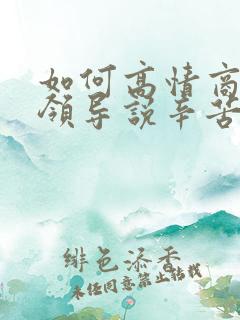 如何高情商
领导说辛苦
绯色添香
未经同意禁止转载